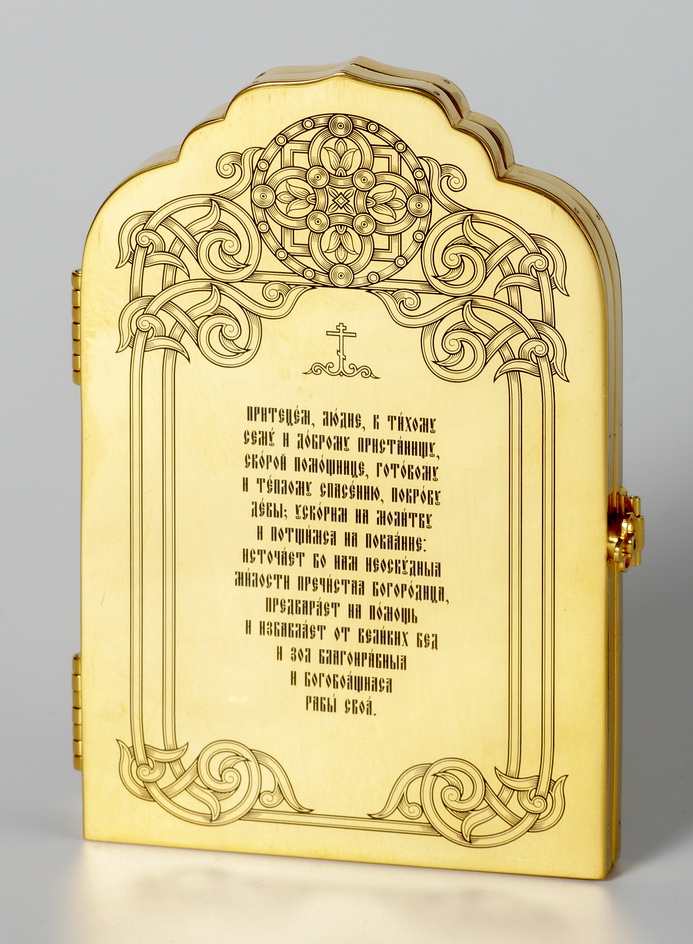 Притеце́м, лю́дие, к ти́хому
сему́ и до́брому приста́нищу,
ско́рой помо́щнице, гото́вому
и те́плому спасе́нию, покро́ву
де́вы; уско́рим на моли́тву
и потщи́мся на покая́ние:
источа́ет бо нам неоску́дныя
ми́лости пречи́стая Богоро́дица,
предваря́ет на по́мощь
и избавля́ет от вели́ких бед
и зол благонра́вныя
и богобоя́щияся
рабы́ своя́.